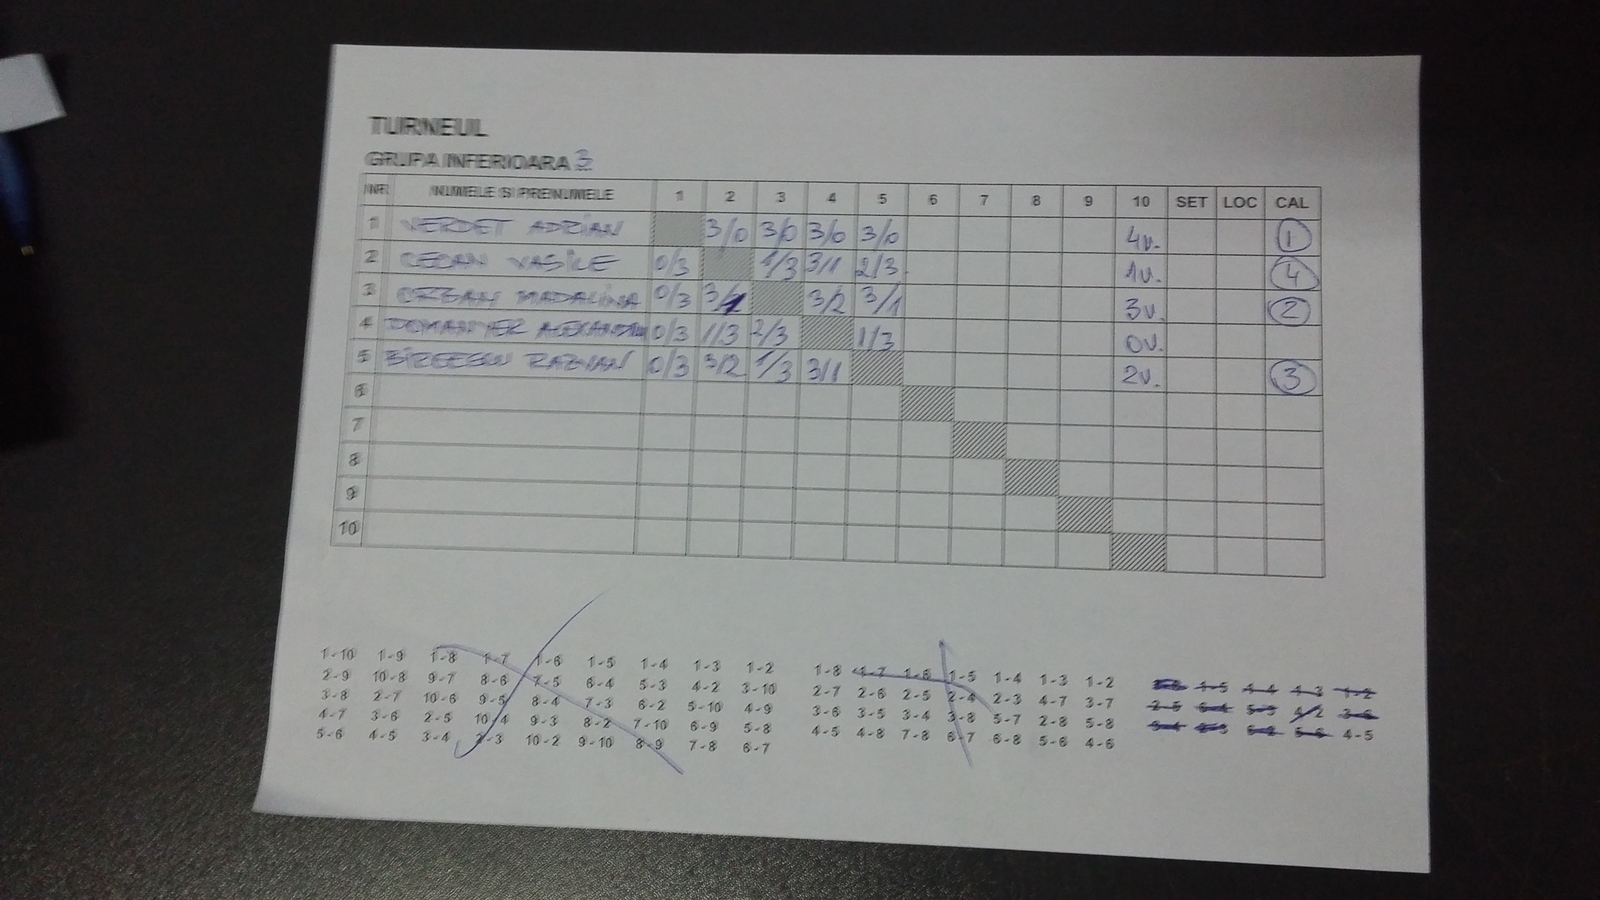 TURNEUL
GRUPA INFERIOARA 3
NR NUMELE SI PRENUMELE 1 2 3 4 5 6 7 8 9 10 SET LOC CAL
1 VERDET ADRIAN 3/0 3/0 3/0 3/0 4v. 1
2 VASILE 0/3 1/3 3/1 2/3 1v. 4
3 MADALINA 0/3 3/1 3/2 3/1 3v. 2
4 0/3 1/3 2/3 1/3 0v.
5 RAZVAN 0/3 3/2 1/3 3/1 2v. 3
6
7
8
9
10
1-10 1-9 1-8 1-7 1-6 1-5 1-4 1-3 1-2 1-8 1-7 1-6 1-5 1-4 1-3 1-2 1-5 1-4 1-3 1-2
2-9 10-8 9-7 8-6 7-5 6-4 5-3 4-2 3-10 2-7 2-6 2-5 2-4 2-3 4-7 3-7 2-5 6-4 5-3 4-2 3-6
3-8 2-7 10-6 9-5 8-4 7-3 6-2 5-10 4-9 3-6 3-5 3-4 3-8 5-7 2-8 5-8 3-4 5-6 4-5
4-7 3-6 2-5 10-4 9-3 8-2 7-10 6-9 5-8 4-5 4-8 7-8 6-7 6-8 5-6 4-6
5-6 4-5 3-4 2-3 10-2 9-10 8-9 7-8 6-7